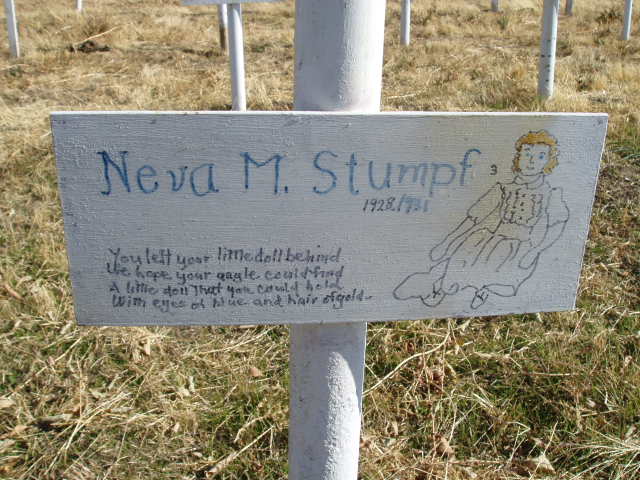 Neva M. Stumpf
3
1928/1931
You left your little doll behind
We hope your angle could find
A little doll That you could hold
With eyes of blue and hair of gold.